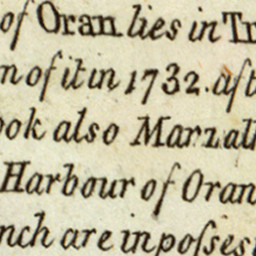 of Oran lies in Tr
n of it in 1732. aſt
ook also Marzal
Harbour of Oran
nch are in poſses